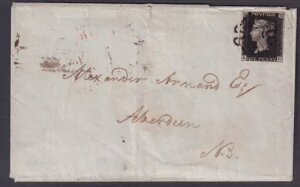 POSTAGE
ONE PENNY
Alexander Annand Esqr
Aberdeen
N.B.